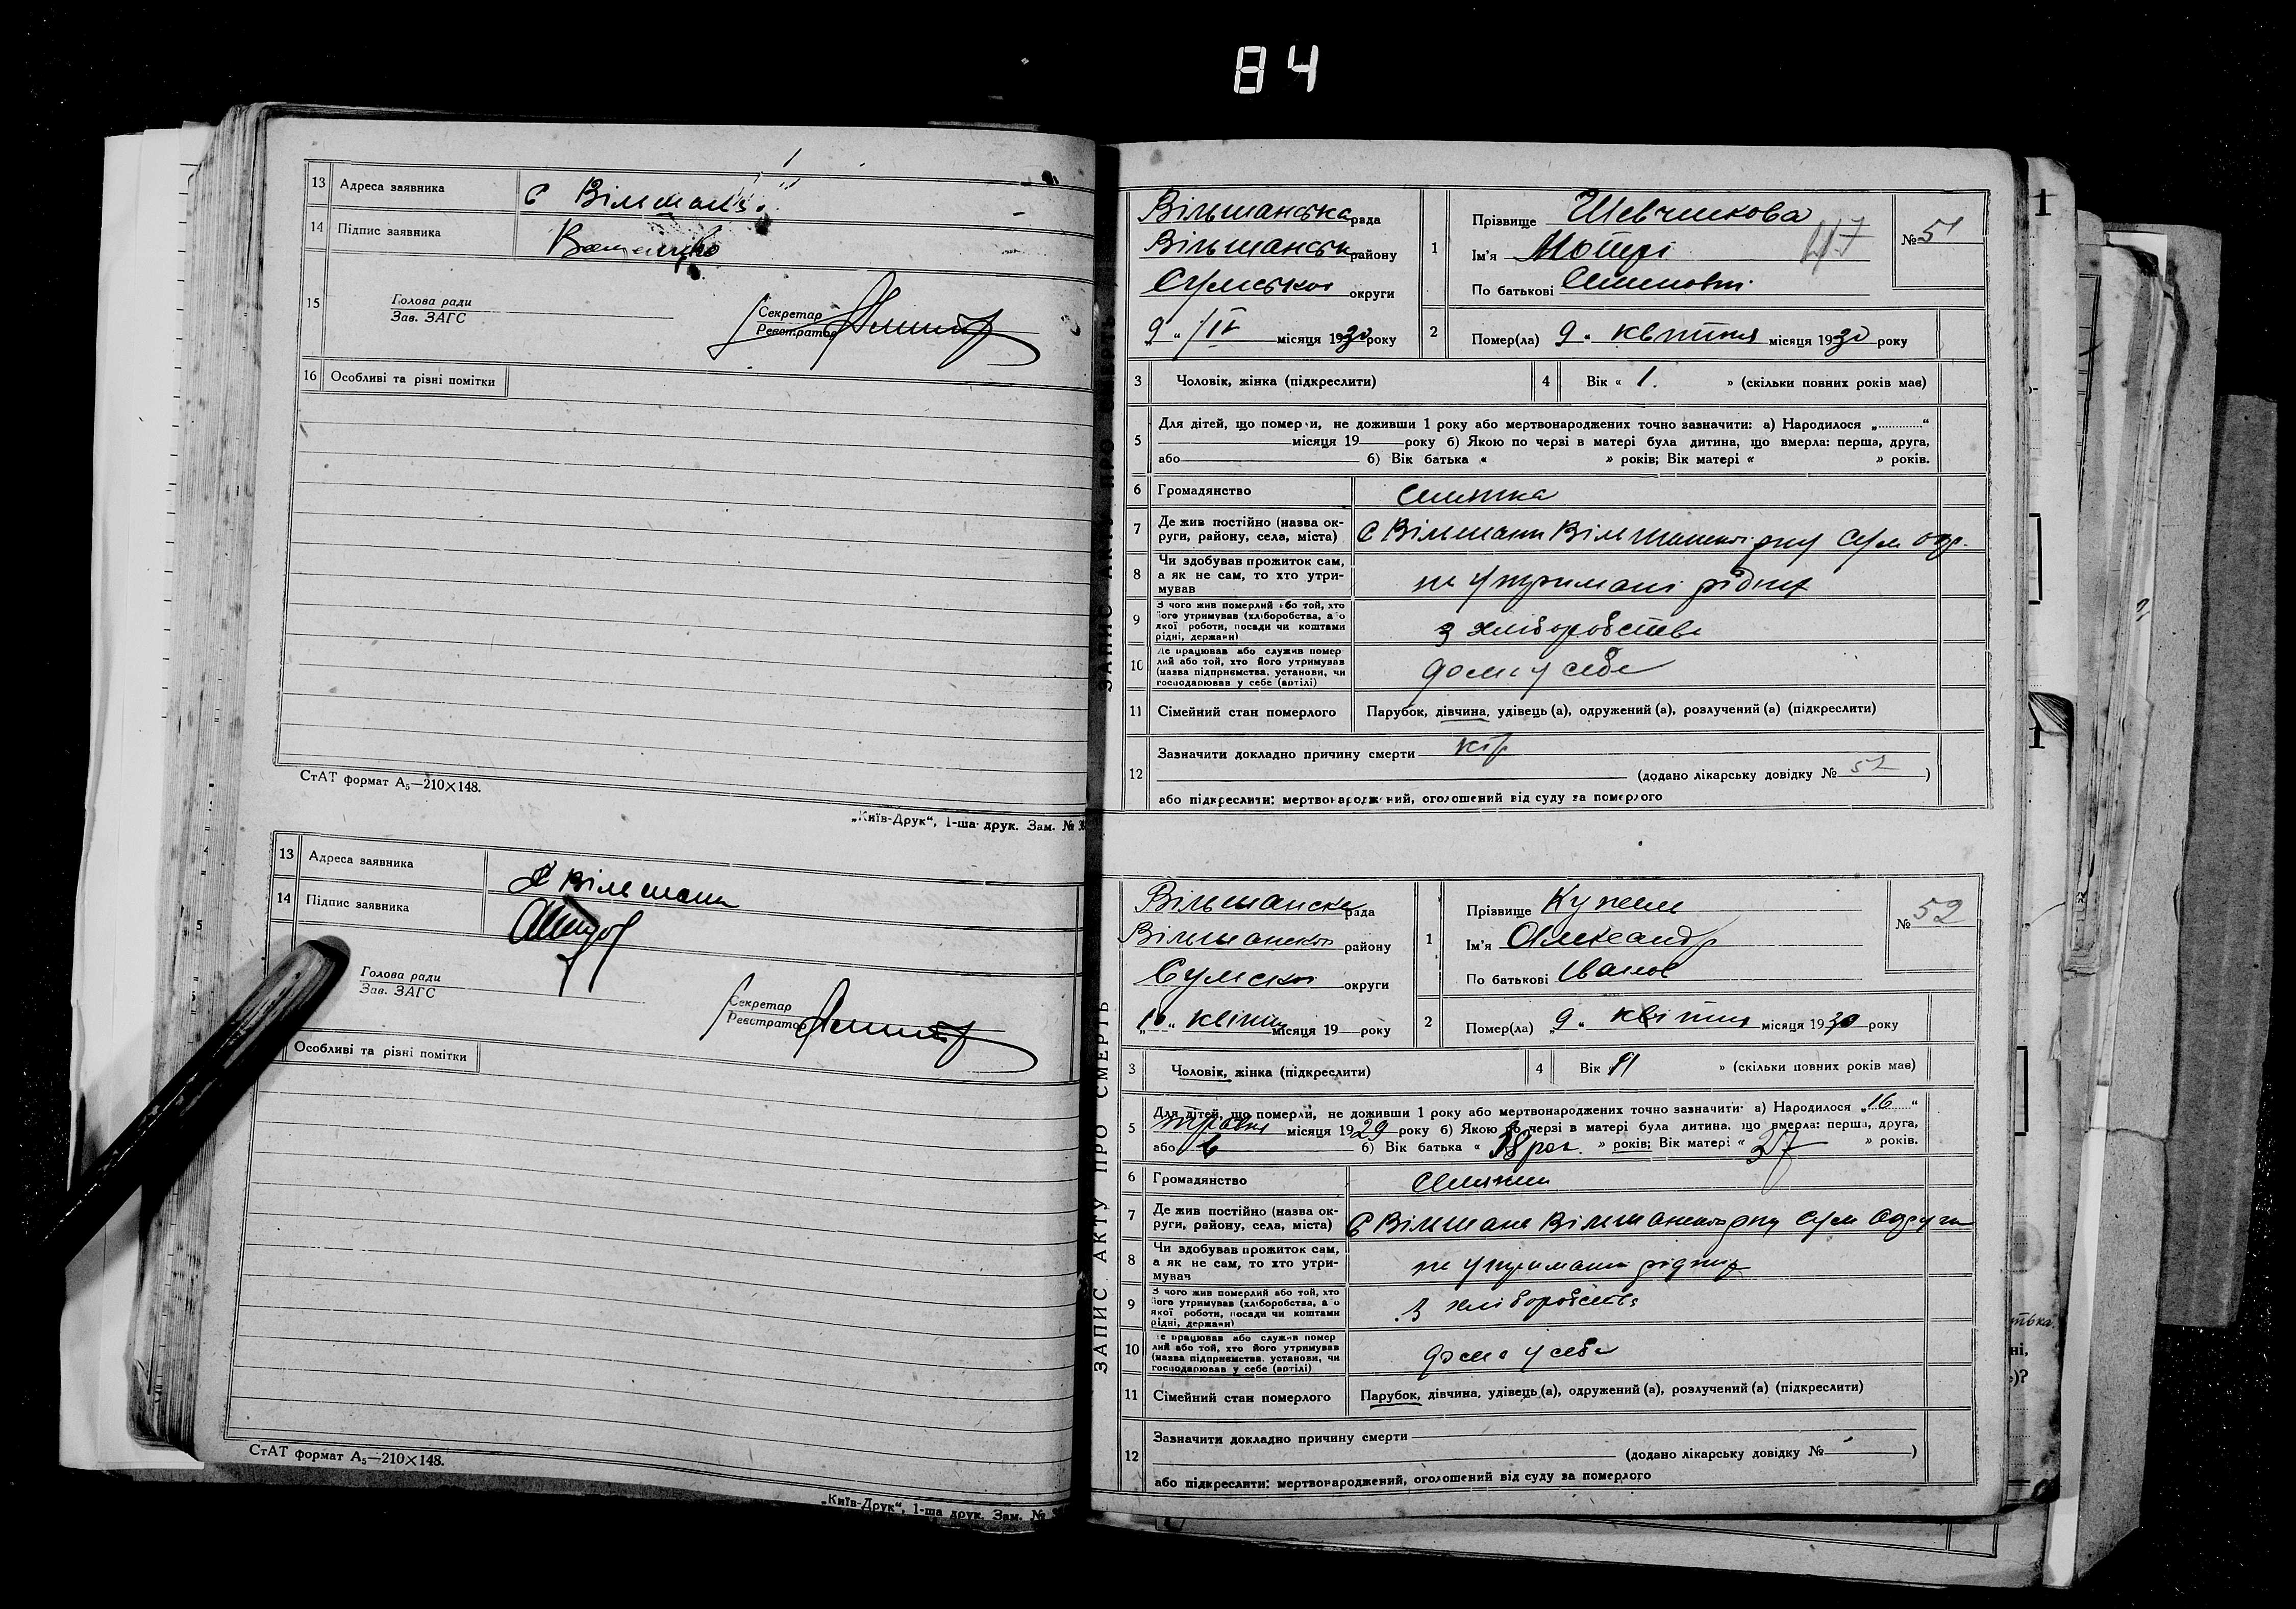 84
13 Адреса заявника с Вільшань.
14 Підпис заявника
15 Голова ради
Зав. ЗАГС
Секретар
Реєстратор
16 Особливі та різні помітки
СтАТ формат А₅—210×148.
„Київ-Друк“, 1-ша друк. Зам. №
13 Адреса заявника С Вільшани
14 Підпис заявника
Голова ради
Зав. ЗАГС
Секретар
Реєстратор
Особливі та різні помітки
СтАТ формат А₅—210×148.
„Київ-Друк“, 1-ша друк. Зам. №
Вільшанська рада
Вільшанськ району
Сумської округи
„9“ /IV місяця 1930 року
1 Прізвище Шевчикова
Ім'я Мотрі
По батькові
№ 51
47
2 Помер(ла) 9 „ квітня місяця 1930 року
3 Чоловік, жінка (підкреслити)
4 Вік « 1. » (скільки повних років має)
5 Для дітей, що померли, не доживши 1 року або мертвонароджених точно зазначити: а) Народилося „ “
місяця 19 року б) Якою по черзі в матері була дитина, що вмерла: перша, друга,
або б) Вік батька « » років; Вік матері « » років.
6 Громадянство
7 Де жив постійно (назва ок-
руги, району, села, міста) С Вільшани Вільшанської р-ну Сум окр.
8 Чи здобував прожиток сам,
а як не сам, то хто утри-
мував на утримані рідних
9 З чого жив померлий або той, хто
його утримував (хліборобства, або
якої роботи, посади чи коштами
рідні, держави) з хліборобства
10 Де працював або служив помер
лий або той, хто його утримував
(назва підприємства, установи, чи
господарював у себе (артілі) дома у себе
11 Сімейний стан померлого Парубок, дівчина, удівець (а), одружений (а), розлучений (а) (підкреслити)
12 Зазначити докладно причину смерти кір
(додано лікарську довідку № 51 )
або підкреслити: мертвонароджений, оголошений від суду за померлого
ЗАПИС АКТУ ПРО СМЕРТЬ
Вільшанска рада
Вільшанской району
Сумской округи
„10“ квітня місяця 19 року
1 Прізвище
Ім'я Олександр
По батькові Іванов
№ 52
2 Помер(ла) „9 „ квітня місяця 1930 року
3 Чоловік, жінка (підкреслити)
4 Вік » (скільки повних років має)
5 Для дітей, що померли, не доживши 1 року або мертвонароджених точно зазначити: а) Народилося „16“
травня місяця 1929 року б) Якою по черзі в матері була дитина, що вмерла: перша, друга,
або 6 б) Вік батька « 38 рок. » років; Вік матері « 37 » років.
6 Громадянство
7 Де жив постійно (назва ок-
руги, району, села, міста) С Вільшана Вільшанской р-ну Сум Округи
8 Чи здобував прожиток сам,
а як не сам, то хто утри-
мував на утримани рідних
9 З чого жив померлий або той, хто
його утримував (хліборобства, або
якої роботи, посади чи коштами
рідні, держави) З хліборобства
10 Де працював або служив помер
лий або той, хто його утримував
(назва підприємства, установи, чи
господарював у себе (артілі) дома у себе
11 Сімейний стан померлого Парубок, дівчина, удівець (а), одружений (а), розлучений (а) (підкреслити)
12 Зазначити докладно причину смерти
(додано лікарську довідку № )
або підкреслити: мертвонароджений, оголошений від суду за померлого
ЗАПИС АКТУ ПРО СМЕРТЬ